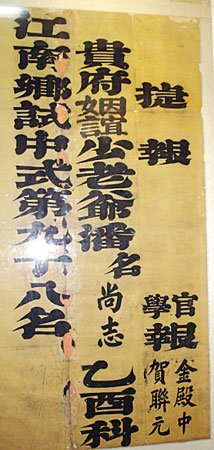 捷報
官學報
金殿中
賀聯元
貴府姻誼少老爺潘名尚志乙酉科
江南鄉試中式第九十八名